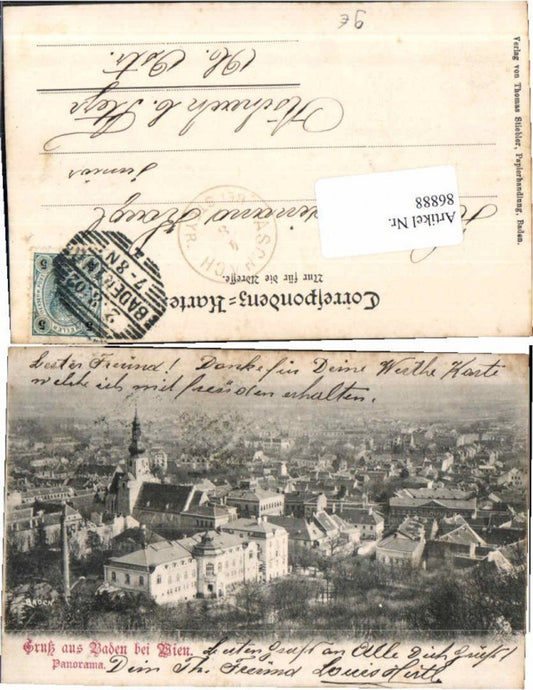 9€
Verlag von Thomas Stiebler, Papierhandlung, Baden.
Correspondenz-Karte
Nur für die Adresse.
Artikel Nr.
86888
BADEN
7-8N
junior
Höchach b Steyr
Ob. Östr.
Bester Freund! Danke für Deine Werthe Karte
welche ich mit freuden erhalten.
BADEN
Gruß aus Baden bei Wien.
Panorama.
Besten Gruß an Alle Dich Grüßt
Dein Th. Freund Louis